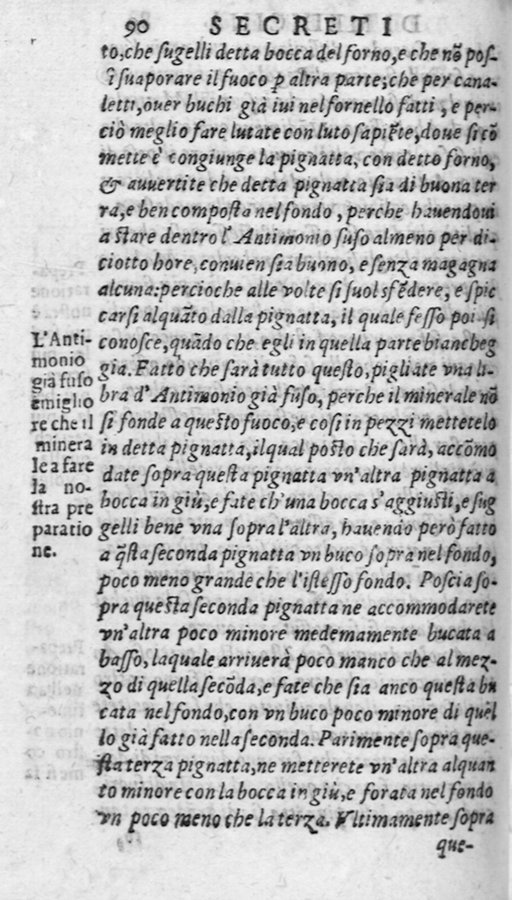 90 SECRETI
to, che sugelli detta bocca del forno, e che nõ pos-
suaporare il fuoco ꝑ altra parte; che per cana-
letti, ouer buchi già iui nel fornello fatti, e per-
ciò meglio fare lutate con luto sapiẽte, doue si cõ
mette è congiunge la pignatta, con detto forno,
& auuertite che detta pignatta sia di buona ter
ra, e ben composta nel fondo, perche hauendoui
a stare dentro l'Antimonio fuso almeno per di-
ciotto hore, conuien sia buono, e senza magagna
alcuna: percioche alle volte si suol sfẽdere, e spic
carsi alquãto dalla pignatta, il quale fesso poi si
conosce, quãdo che egli in quella parte biancheg
gia. Fatto che sarà tutto questo, pigliate vna li-
bra d'Antimonio già fuso, perche il minerale nõ
si fonde a questo fuoco, e cosi in pezzi mettetelo
in detta pignatta, ilqual posto che sarà, accõmo
date sopra questa pignatta vn'altra pignatta a
bocca in giù, e fate ch'una bocca s'aggiusti, e sug
gelli bene vna sopra l'altra, hauendo però fatto
a q̃sta seconda pignatta vn buco sopra nel fondo,
poco meno grande che l'istesso fondo. Poscia so-
pra questa seconda pignatta ne accommodarete
vn'altra poco minore medemamente bucata a
basso, laquale arriuerà poco manco che al mez-
zo di quella secõda, e fate che sia anco questa bu
cata nel fondo, con vn buco poco minore di quel
lo già fatto nella seconda. Parimente sopra que-
sta terza pignatta, ne metterete vn'altra alquan
to minore con la bocca in giù, e forata nel fondo
vn poco meno che la terza. Vltimamente sopra
que-
L'Anti-
monio
già fuso
è miglio
re che il
minera
le a fare
la no-
stra pre
paratio
ne.